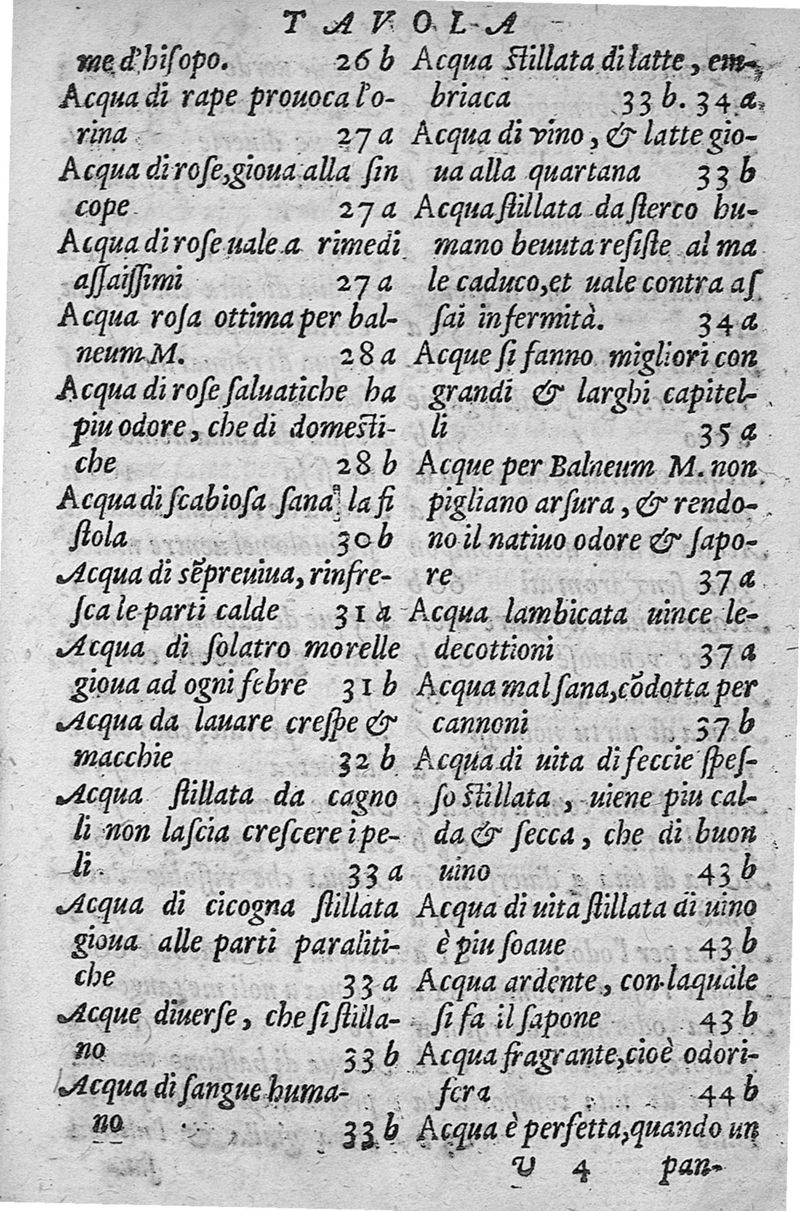 TAVOLA
me d'hiſopo. 26 b
Acqua di rape prouoca l'o-
rina 27 a
Acqua di roſe, gioua alla ſin
cope 27 a
Acqua di roſe uale a rimedi
aſſaiſſimi 27 a
Acqua roſa ottima per bal-
neum M. 28 a
Acqua di roſe ſaluatiche ha
piu odore, che di domeſti-
che 28 b
Acqua di ſcabioſa ſana la fi
ſtola 30 b
Acqua di sẽpreuiua, rinfre-
ſca le parti calde 31 a
Acqua di ſolatro morelle
gioua ad ogni febre 31 b
Acqua da lauare creſpe &
macchie 32 b
Acqua ſtillata da cagno
li non laſcia creſcere i pe-
li. 33 a
Acqua di cicogna ſtillata
gioua alle parti paraliti-
che 33 a
Acque diuerſe, che ſi ſtilla-
no 33 b
Acqua di ſangue huma-
no 33 b
Acqua ſtillata di latte, em-
briaca 33 b. 34 a
Acqua di vino, & latte gio-
ua alla quartana 33 b
Acqua ſtillata da ſterco hu-
mano beuuta reſiſte al ma
le caduco, et uale contra aſ
ſai infermità. 34 a
Acque ſi fanno migliori con
grandi & larghi capitel-
li 35 a
Acque per Balneum M. non
pigliano arſura, & rendo-
no il natiuo odore & ſapo-
re 37 a
Acqua lambicata uince le
decottioni 37 a
Acqua mal ſana, cõdotta per
cannoni 37 b
Acqua di uita di feccie ſpeſ-
ſo ſtillata, uiene piu cal-
da & ſecca, che di buon
uino 43 b
Acqua di uita ſtillata di uino
è piu ſoaue 43 b
Acqua ardente, con laquale
ſi fa il ſapone 43 b
Acqua fragrante, cioè odori-
fera 44 b
Acqua è perfetta, quando un
V 4 pan-